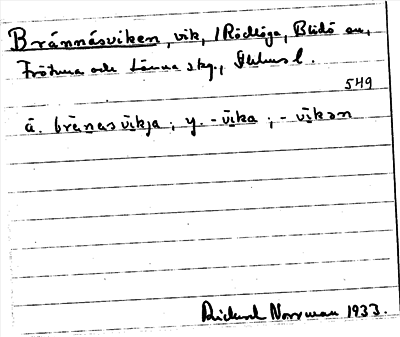 Brännäsviken, vik, i Rödlöga, Blidö sn,
Frötuna och Länna skg., Sthlms l.
549
ä. bränasvikja; y. -vika; -vikən
Rickard Norrman 1933.